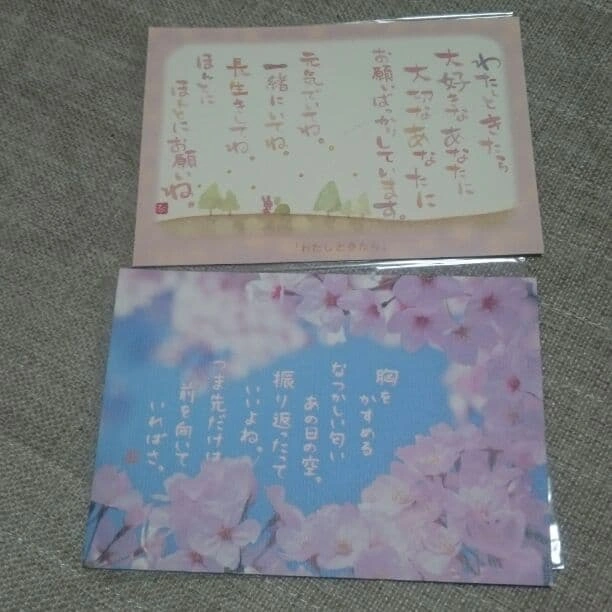 わたしときたら
大好きなあなたに
大切なあなたに
お願いばっかりしています。
元気でいてね。
一緒にいてね。
長生きしてね。
ほんとに
ほんとにお願いね。
「わたしときたら」
胸を
かすめる
なつかしい匂い
あの日の空。
振り返ったって
いいよね。
つま先だけは
前を向いて
いればさ。